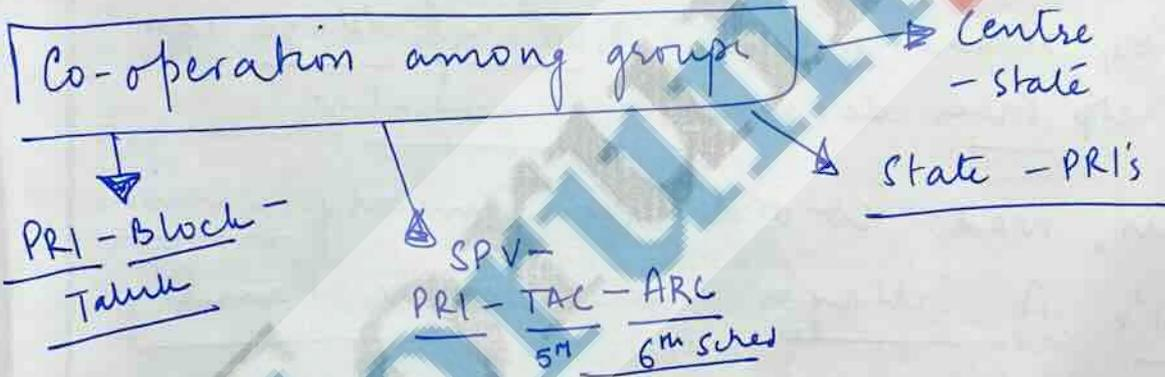 Co-operation among groups
Centre
- State
State - PRI's
PRI - Block -
Taluk
SPV -
PRI - TAC - ARC
5th 6th Sched